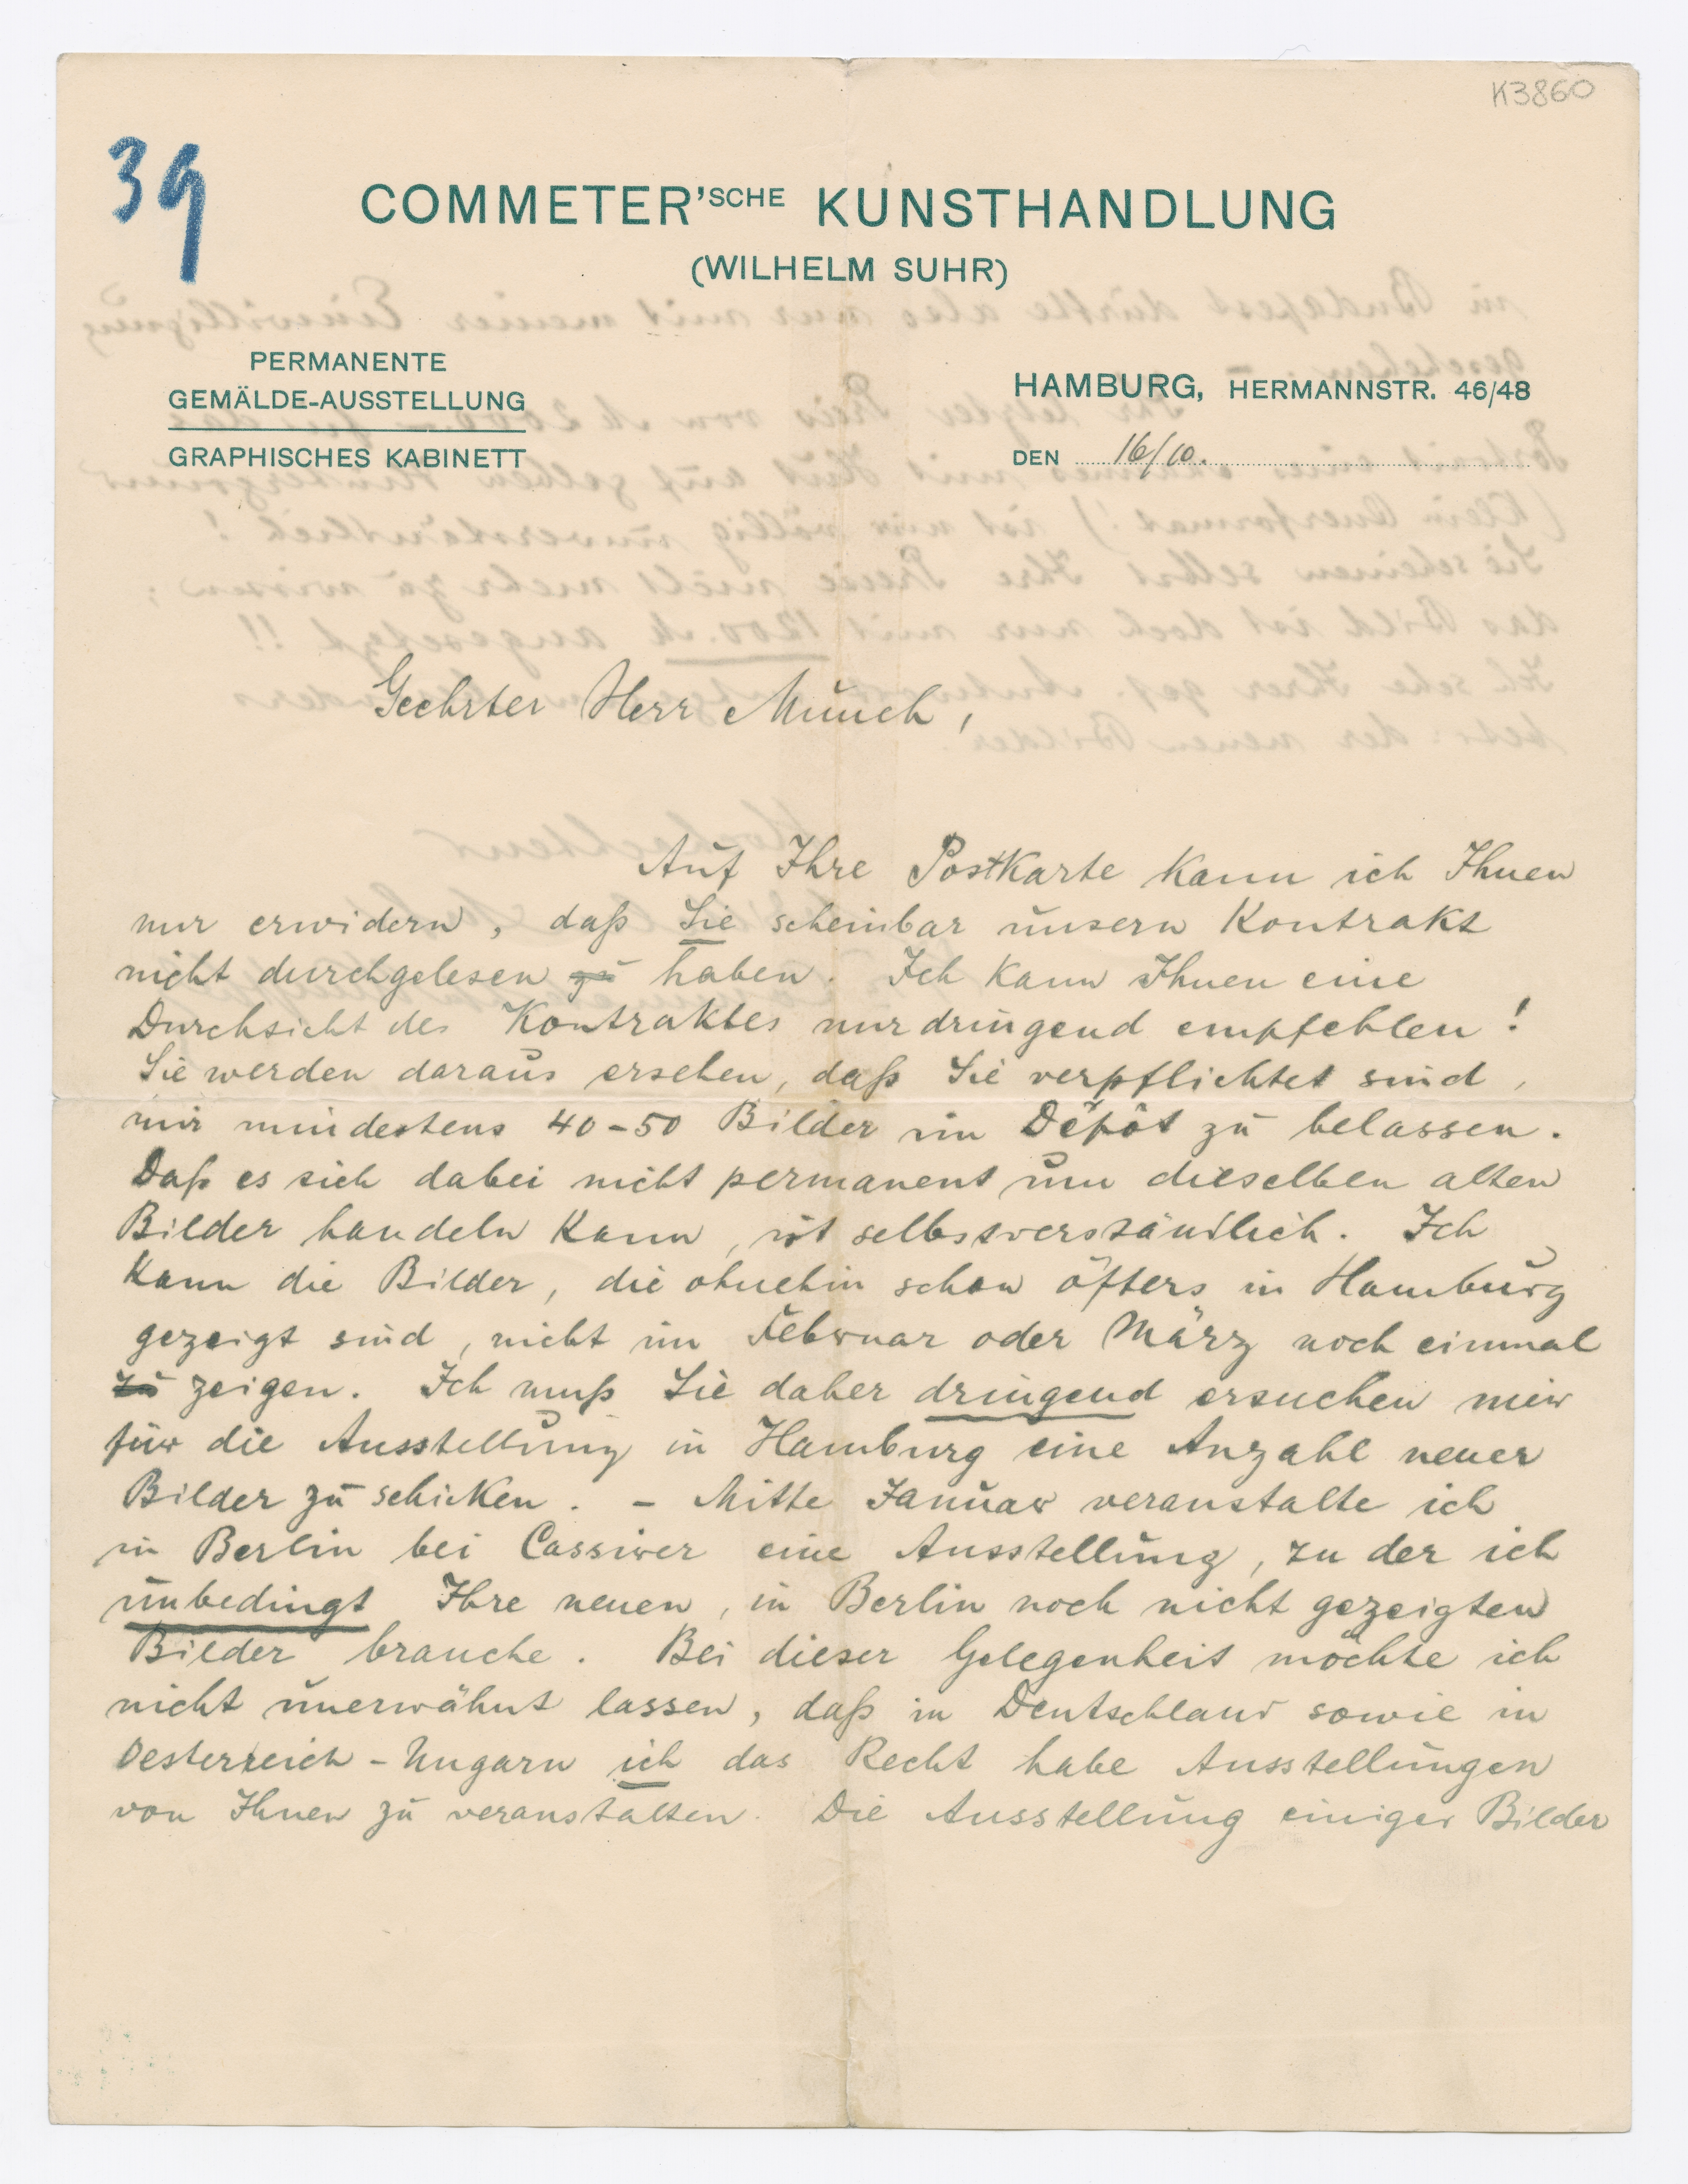 K3860
39
COMMETER'SCHE KUNSTHANDLUNG
(WILHELM SUHR)
PERMANENTE
GEMÄLDE-AUSSTELLUNG
GRAPHISCHES KABINETT
HAMBURG, HERMANNSTR. 46/48
DEN 16/10.
Geehrter Herr Munch,
Auf Ihre Postkarte kann ich Ihnen
nur erwidern, daß Sie scheinbar unsern Kontrakt
nicht durchgelesen zu haben. Ich kann Ihnen eine
Durchsicht des Kontraktes nur dringend empfehlen!
Sie werden daraus ersehen, daß Sie verpflichtet sind,
mir mindestens 40-50 Bilder im Dépôt zu belassen.
Daß es sich dabei nicht permanent um dieselben alten
Bilder handeln kann, ist selbstverständlich. Ich
kann die Bilder, die ohnehin schon öfters in Hamburg
gezeigt sind, nicht im Februar oder März noch einmal
zu zeigen. Ich muß Sie daher dringend ersuchen mir
für die Ausstellung in Hamburg eine Anzahl neuer
Bilder zu schicken. – Mitte Januar veranstalte ich
in Berlin bei Cassirer eine Ausstellung, zu der ich
unbedingt Ihre neuen, in Berlin noch nicht gezeigten
Bilder brauche. Bei dieser Gelegenheit möchte ich
nicht unerwähnt lassen, daß in Deutschland sowie in
Oesterreich-Ungarn ich das Recht habe Ausstellungen
von Ihnen zu veranstalten. Die Ausstellung einiger Bilder